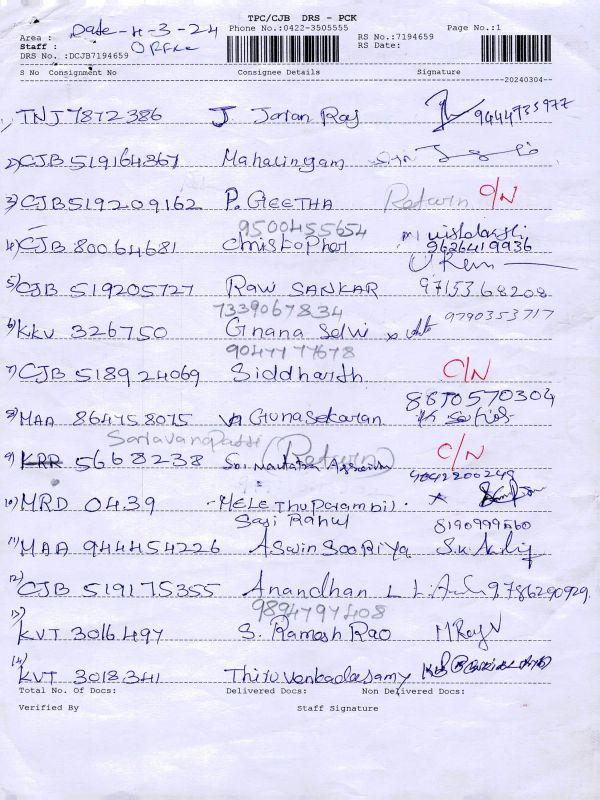 TPC/CJB DRS - PCK
Date-4-3-24
Phone No.:0422-3505555
Page No.:1
Area :
RS No.:7194659
Staff :
Office
RS Date:
DRS No. :DCJB7194659
S No Consignment No Consignee Details Signature
20240304
1) TNJ 7872386 J. Jovan Raj 9444735977
2) CJB 519164867 Mahalingam
3) CJB 519209162 P. GEETHA Return C/N
9500455654
4) CJB 80064681 Christopher 9626419936
5) CJB 519205727 RAVI SANKAR 9715368208
7339067834
6) KKV 326750 Gnana Selvi 9790353717
9047777678
7) CJB 518924069 Siddharth C/N
8870570304
8) MAA 864758075 Gunasekaran
9) KRR 5668238 Sri (Return) C/N
9042200249
10) MRD 0439 -MELE Thuparambil.
Saji Rahul 8190999560
11) MAA 944454226 ASwin SOORiYa
12) CJB 519175355 Anandhan L 9786290929
9894797408
13) KVT 3016497 S. Ramesh Rao
14) KVT 3018341 Thiruvenkadasamy
Total No. Of Docs: Delivered Docs: Non Delivered Docs:
Verified By Staff Signature